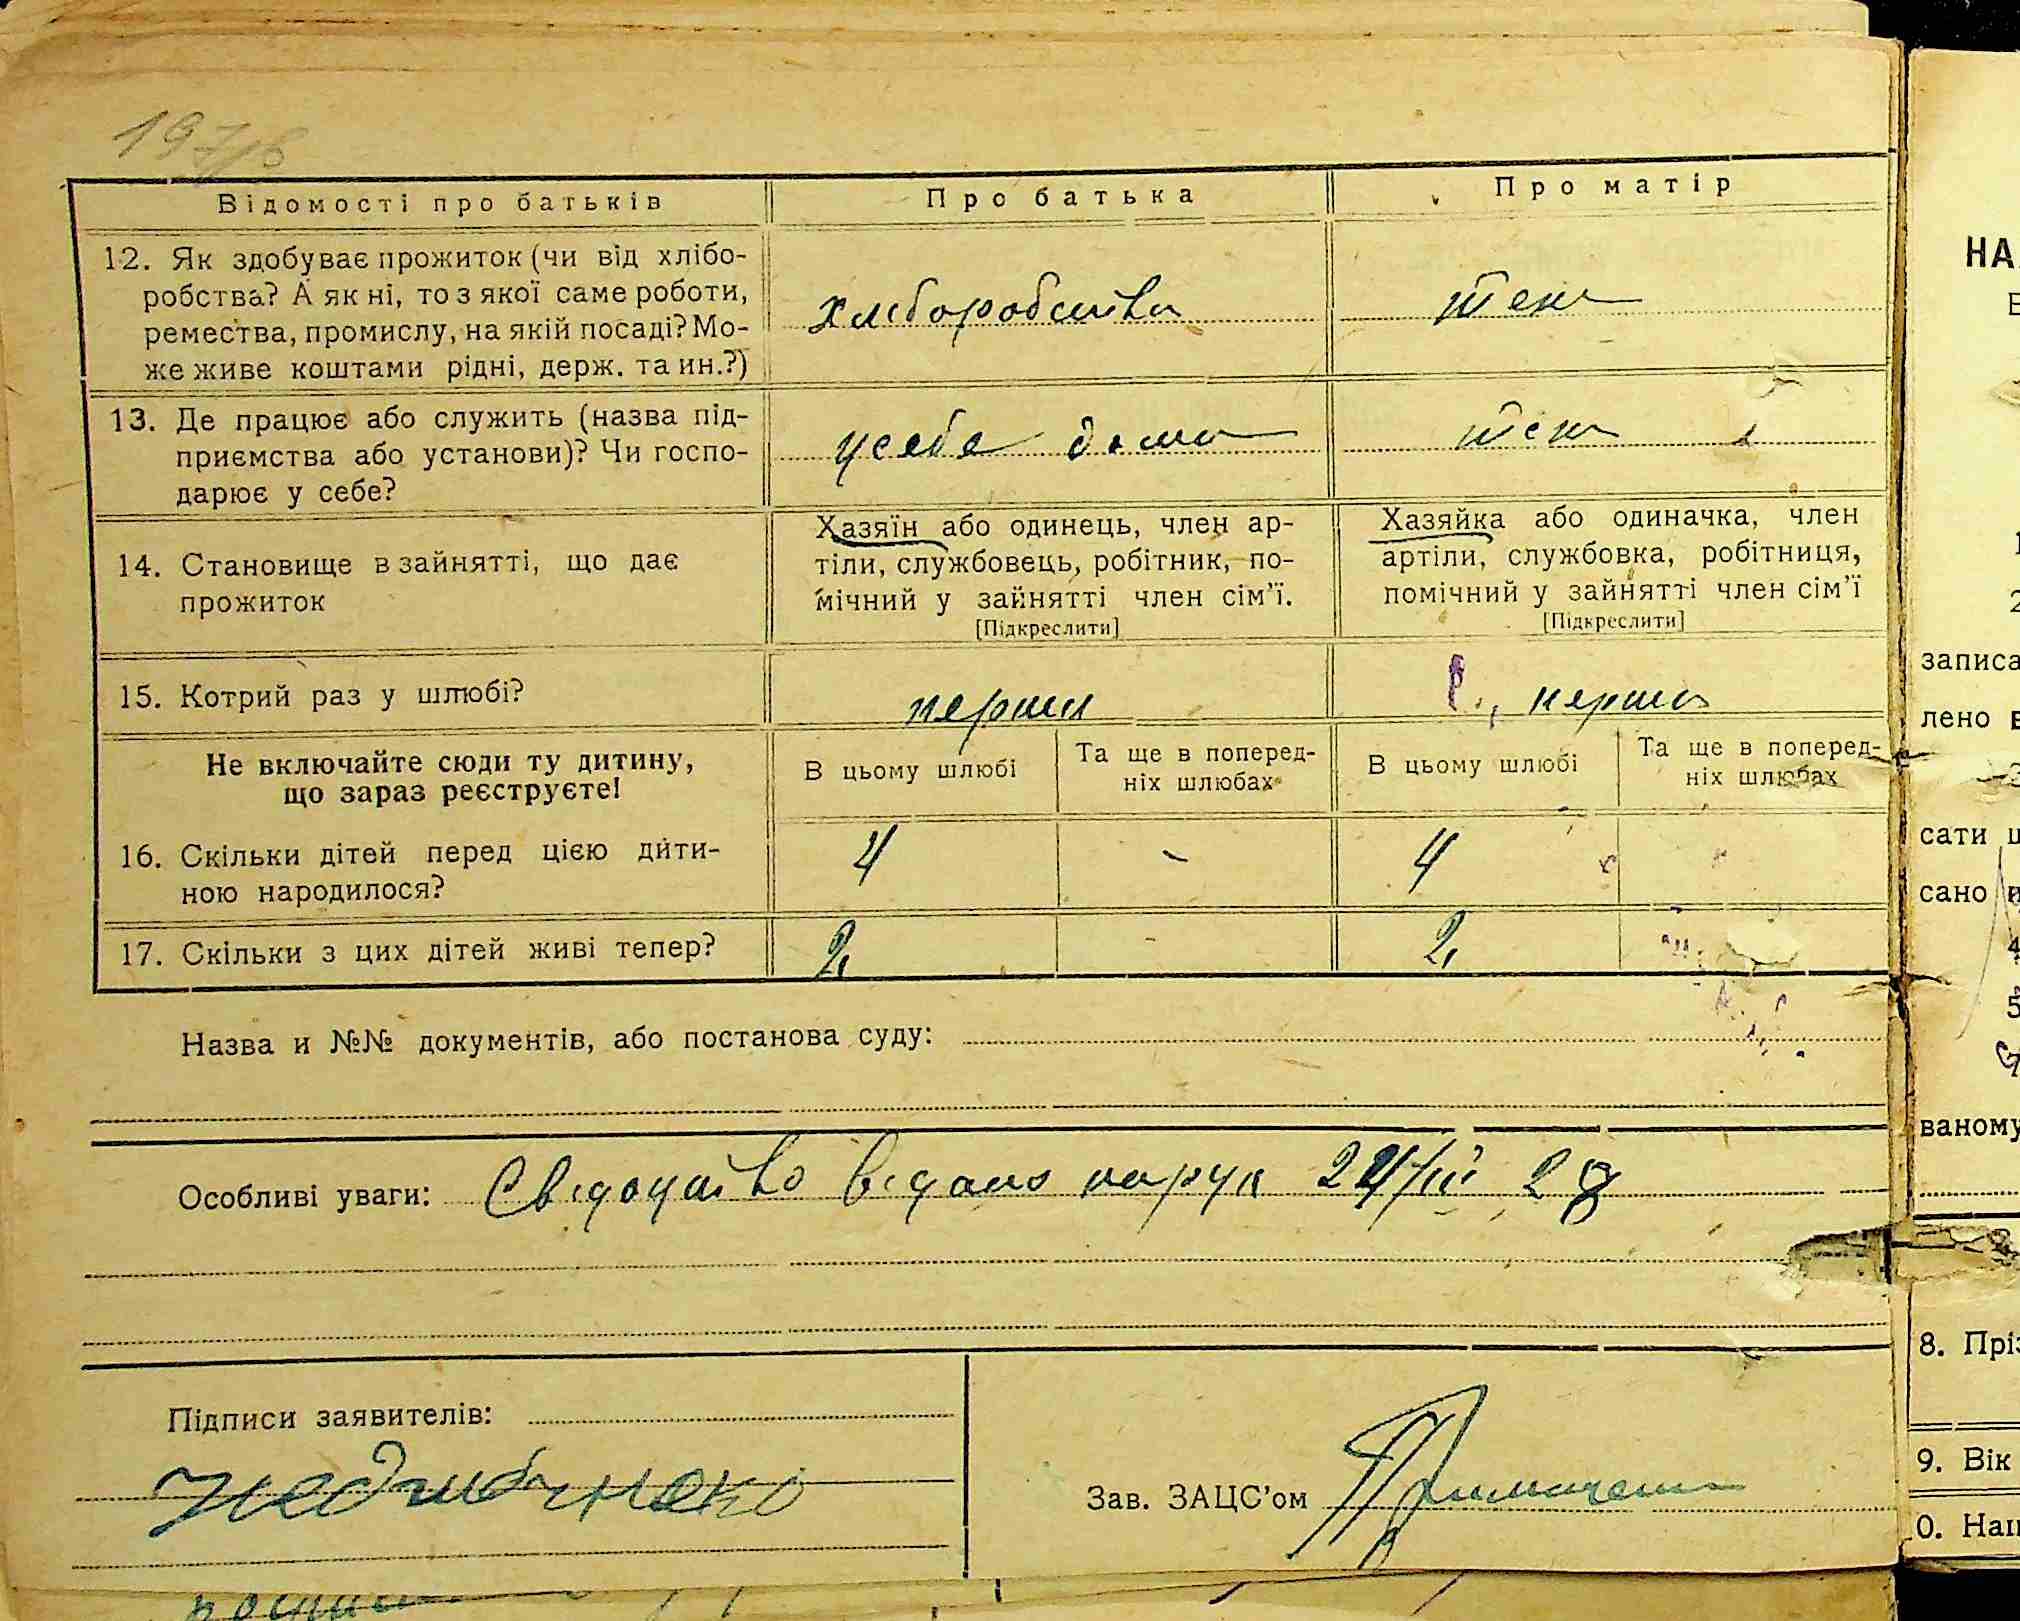 197/в
Відомості про батьків
Про батька
Про матір
12. Як здобуває прожиток (чи від хлібо-
робства? А як ні, то з якої саме роботи,
ремества, промислу, на якій посаді? Мо-
же живе коштами рідні, держ. та ин.?)
хліборобства
теж
13. Де працює або служить (назва під-
приємства або установи)? Чи госпо-
дарює у себе?
усебе дома
теж
14. Становище в зайнятті, що дає
прожиток
Хазяїн або одинець, член ар-
тіли, службовець, робітник, по-
мічний у зайнятті член сім'ї.
[Підкреслити]
Хазяйка або одиначка, член
артіли, службовка, робітниця,
помічний у зайнятті член сім'ї
[Підкреслити]
15. Котрий раз у шлюбі?
перший
перший
Не включайте сюди ту дитину,
що зараз реєструєте!
В цьому шлюбі
Та ще в поперед-
ніх шлюбах
В цьому шлюбі
Та ще в поперед-
ніх шлюбах
16. Скільки дітей перед цією дити-
ною народилося?
4
-
4
17. Скільки з цих дітей живі тепер?
2
-
2
Назва и №№ документів, або постанова суду:
Особливі уваги: Свідоцтво видано на руки 24/III 28
Підписи заявителів:
Зав. ЗАЦС'ом
НА
записа
лено в
сати ц
сано
4
5
ваному
8. Пріз
9. Вік
0. Нац